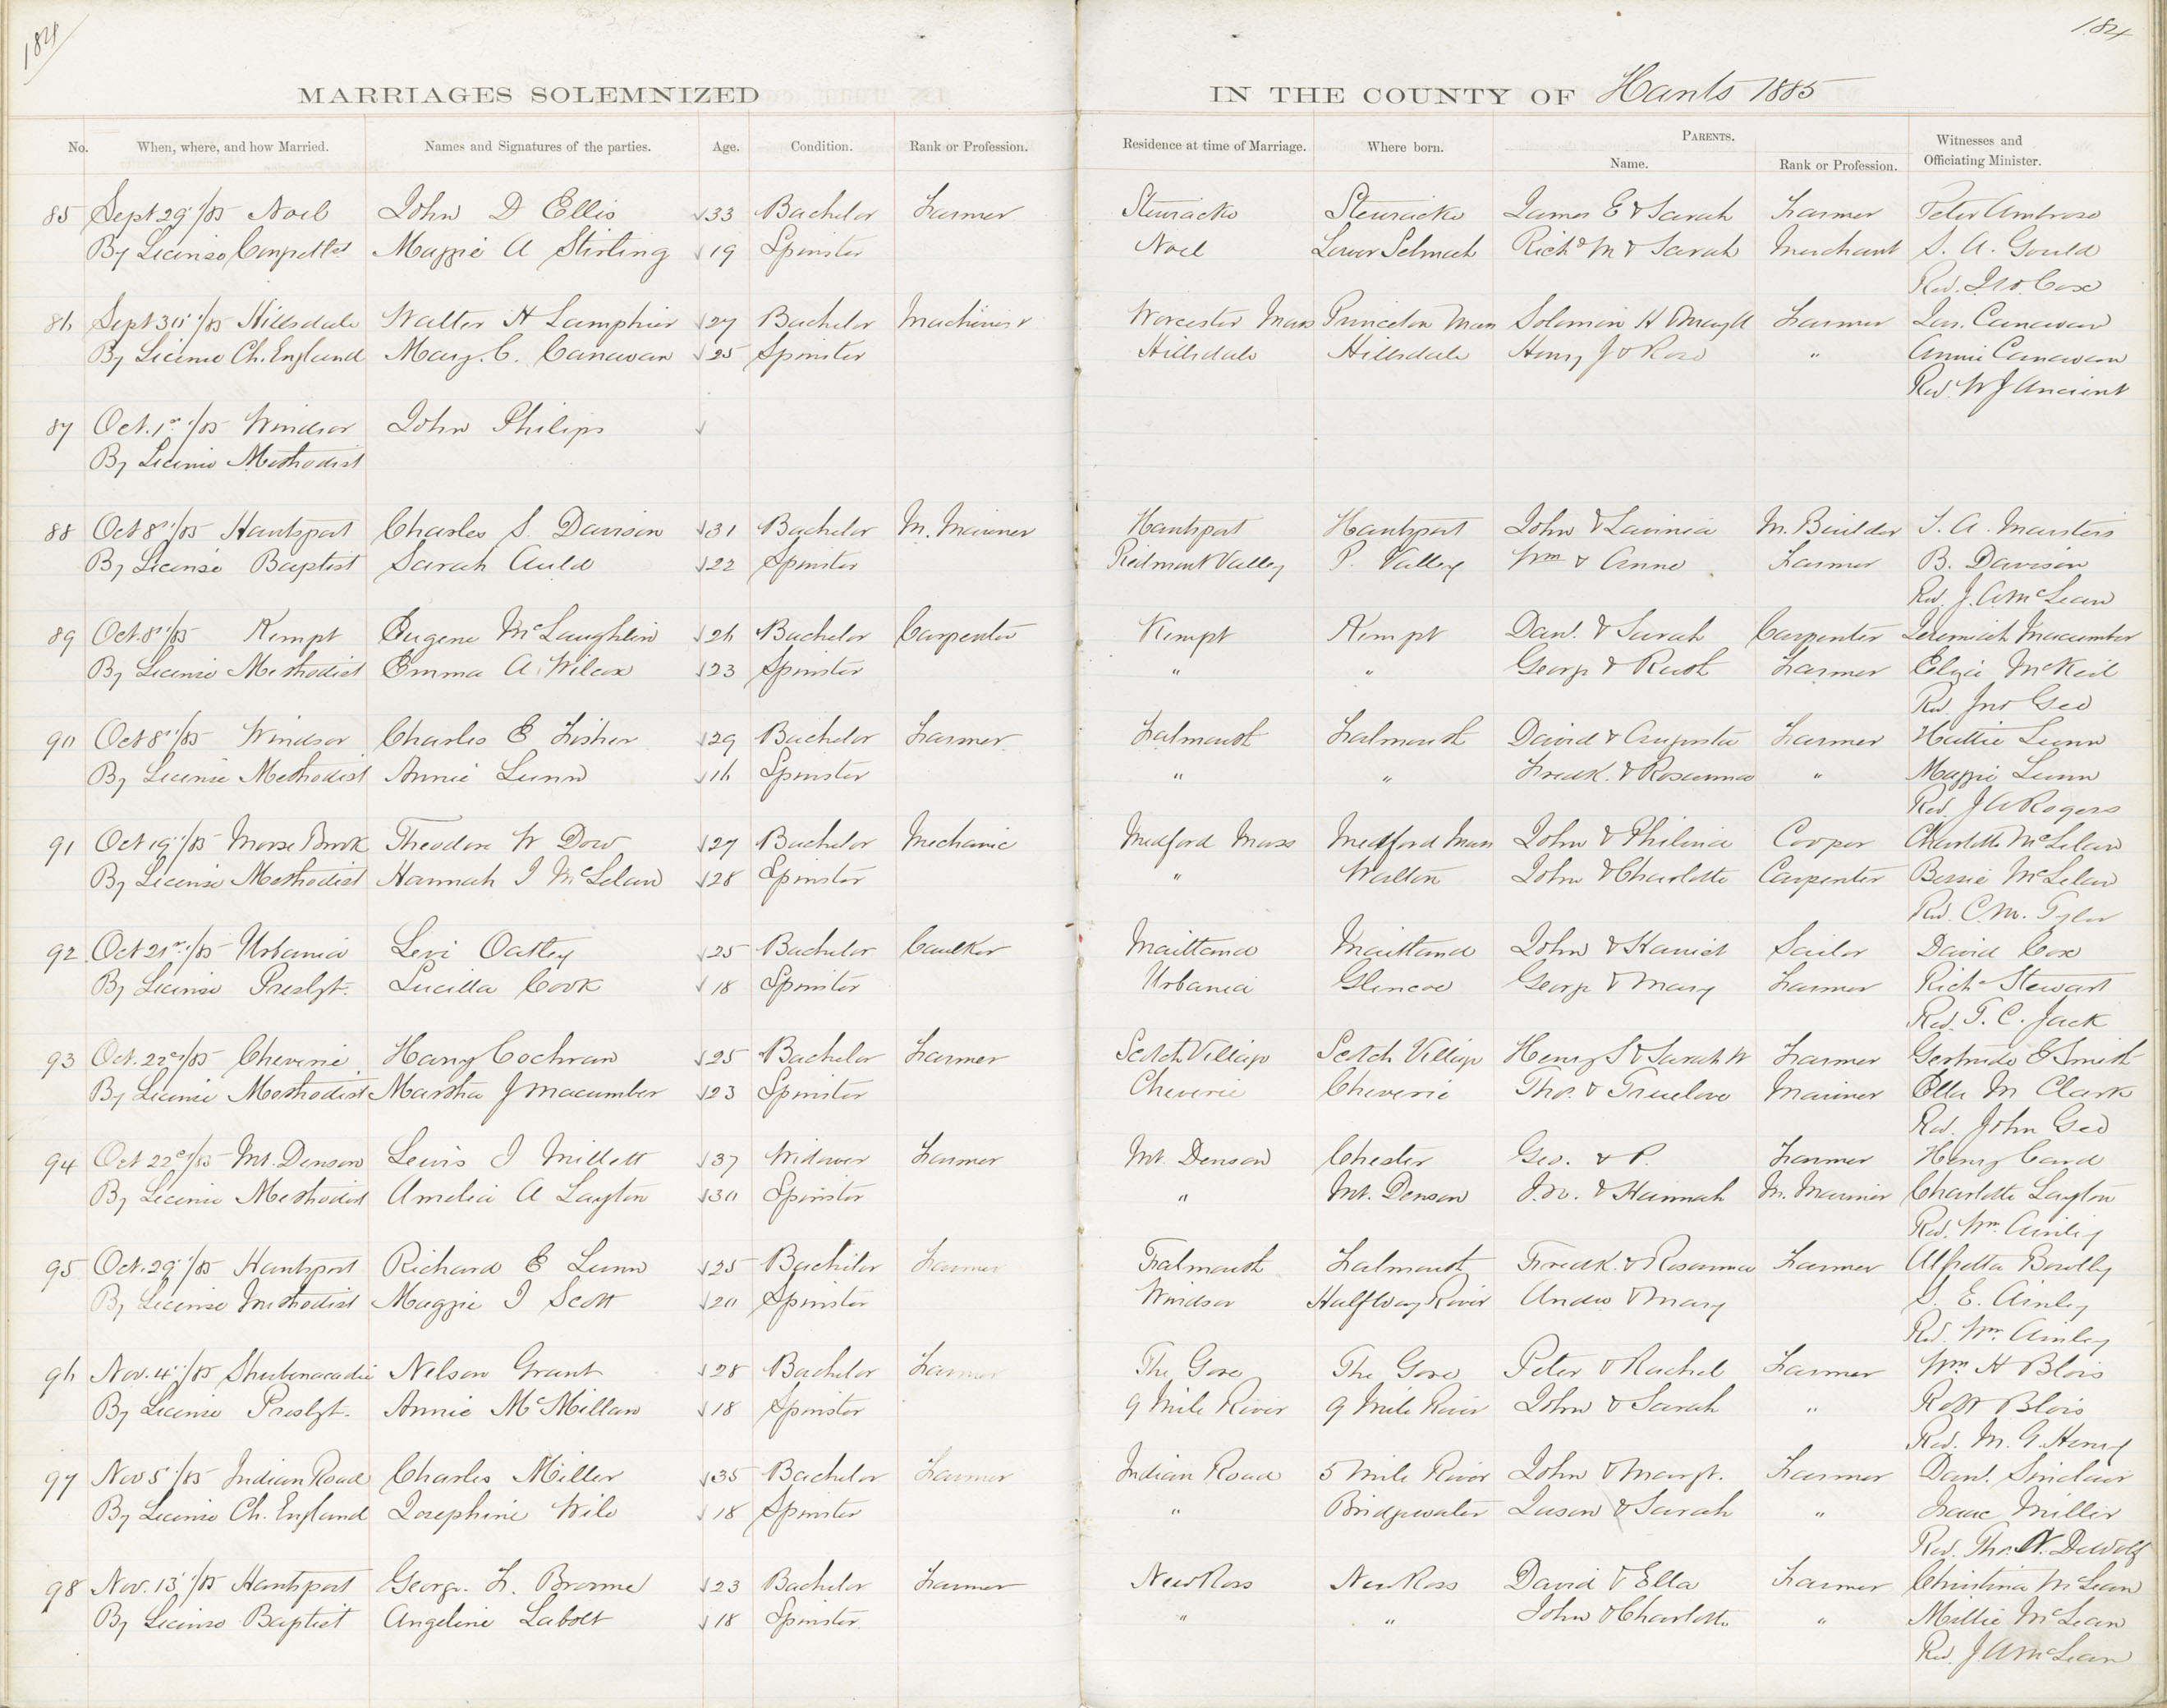 184
184
MARRIAGES SOLEMNIZED IN THE COUNTY OF Hants 1885
No. When, where, and how Married. Names and Signatures of the parties. Age. Condition. Rank or Profession. Residence at time of Marriage. Where born. PARENTS. Name. Rank or Profession. Witnesses and Officiating Minister.
85 Sept 29th/85 Noel John D Ellis 33 Bachelor Farmer Steviacke Steviacke James E & Sarah Farmer Peter Ambrose
By License Maggie A Stirling 19 Spinster Noel Lower Selmah Richd M & Sarah Merchant S. A. Gould
Rev. Jno Cox
86 Sept 30th/85 Hillsdale Walter H Lamphier 27 Bachelor Machinist Worcester Mass Princeton Mass Solomon H & Farmer Jas. Canavan
By License Ch. England Mary. C. Canavan 25 Spinster Hillsdale Hillsdale Henry J & Rose " Annie Canavan
Rev. W J Ancient
87 Oct. 1st/85 Windsor John Philips
By License Methodist
88 Oct 8th/85 Hantsport Charles S. Davison 31 Bachelor M. Mariner Hantsport Hantsport John & Lavinia M. Builder J. A. Marsters
By License Baptist Sarah Auld 22 Spinster Piedmont Valley P. Valley Wm & Anne Farmer B. Davison
Rev. J. A McLean
89 Oct. 8th/85 Kempt Eugene McLaughlin 26 Bachelor Carpenter Kempt Kempt Danl. & Sarah Carpenter Jeremiah Macumber
By License Methodist Emma A. Wilcox 23 Spinster " " George & Ruth Farmer Eliza McNeil
Rev Jno Gee
90 Oct 8th/85 Windsor Charles E Fisher 29 Bachelor Farmer Falmouth Falmouth David & Augusta Farmer Hattie Lunn
By License Methodist Annie Lunn 16 Spinster " " Fredk. & Rosanna " Maggie Lunn
Rev. J A Rogers
91 Oct 19th/85 Morse Brook Theodore W Dow 27 Bachelor Mechanic Medford Mass Medford Mass John & Philena Cooper Charlotte McLelan
By License Methodist Hannah J McLelan 28 Spinster " Walton John & Charlotte Carpenter Bessie McLelan
Rev. C. M. Tyler
92 Oct 21st/85 Urbania Levi Oatley 25 Bachelor Caulker Maitland Maitland John & Harriet Sailor David Cox
By License Presbyt. Lucilla Cook 18 Spinster Urbania Glencoe George & Mary Farmer Richd Stewart
Rev. T. C. Jack
93 Oct. 22nd/85 Cheverie Harry Cochran 25 Bachelor Farmer Scotch Village Scotch Village Henry S & Sarah W Farmer Gertrude E Smith
By License Methodist Martha J Macumber 23 Spinster Cheverie Cheverie Tho. & Truelove Mariner Ella M Clark
Rev. John Gee
94 Oct 22nd/85 Mt. Denson Lewis J Millett 37 Widower Farmer Mt. Denson Chester Geo. & P. Farmer Henry Card
By License Methodist Amelia A Layton 30 Spinster " Mt. Denson J. W. & Hannah M. Mariner Charlotte Layton
Rev. Wm Ainley
95 Oct. 29th/85 Hantsport Richard E Lunn 25 Bachelor Farmer Falmouth Falmouth Fredk. & Rosanna Farmer Alfretta
By License Methodist Maggie J Scott 20 Spinster Windsor Halfway River Andw & Mary S. E. Ainley
Rev. Wm. Ainley
96 Nov. 4th/85 Shubenacadie Nelson Grant 28 Bachelor Farmer The Gore The Gore Peter & Rachel Farmer Wm H Blois
By License Presbyt. Annie McMillan 18 Spinster 9 Mile River 9 Mile River John & Sarah " Blois
Rev. M. G. Henry
97 Nov 5th/85 Indian Road Charles Miller 35 Bachelor Farmer Indian Road 5 Mile River John & Margt. Farmer Danl. Sinclair
By License Ch. England Josephine Wile 18 Spinster " Bridgewater Jason & Sarah " Isaac Miller
Rev. Tho. N. DeWolf
98 Nov. 13th/85 Hantsport George. F. Broome 23 Bachelor Farmer New Ross New Ross David & Ella Farmer Christina McLean
By License Baptist Angeline Labolt 18 Spinster. " " John & Charlotte " Millie McLean
Rev. J A McLean